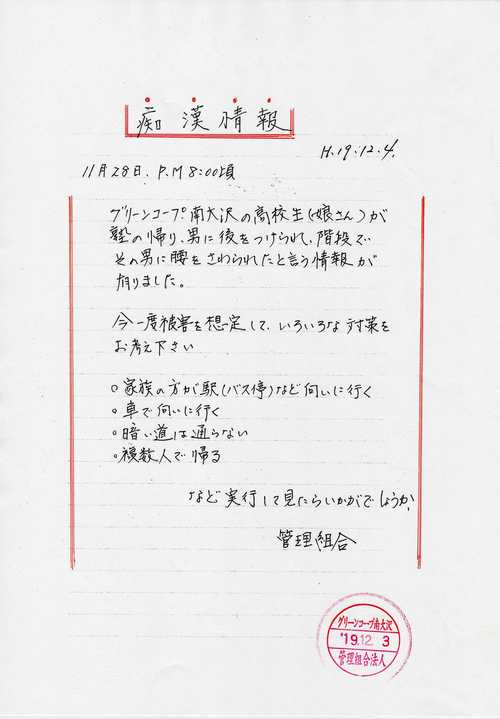 痴漢情報
H.19.12.4.
11月28日. P.M 8:00頃
グリーンコープ南大沢の高校生(娘さん)が
塾の帰り、男に後をつけられ、階段で
その男に腰をさわられたと言う情報が
有りました。
今一度被害を想定して、いろいろな対策を
お考え下さい
○家族の方が駅(バス停)など向いに行く
○車で向いに行く
○暗い道は通らない
○複数人で帰る
など実行して見たらいかがでしょうか。
管理組合
グリーンコープ南大沢
'19.12 3
管理組合法人